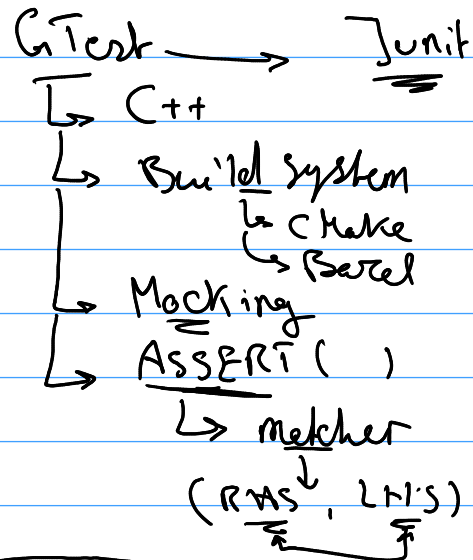 GTest → Junit
↳ C++
↳ Build system
↳ CMake
↳ Bazel
↳ Mocking
↳ ASSERT ( )
↳ matcher
↓
(RHS, LHS)